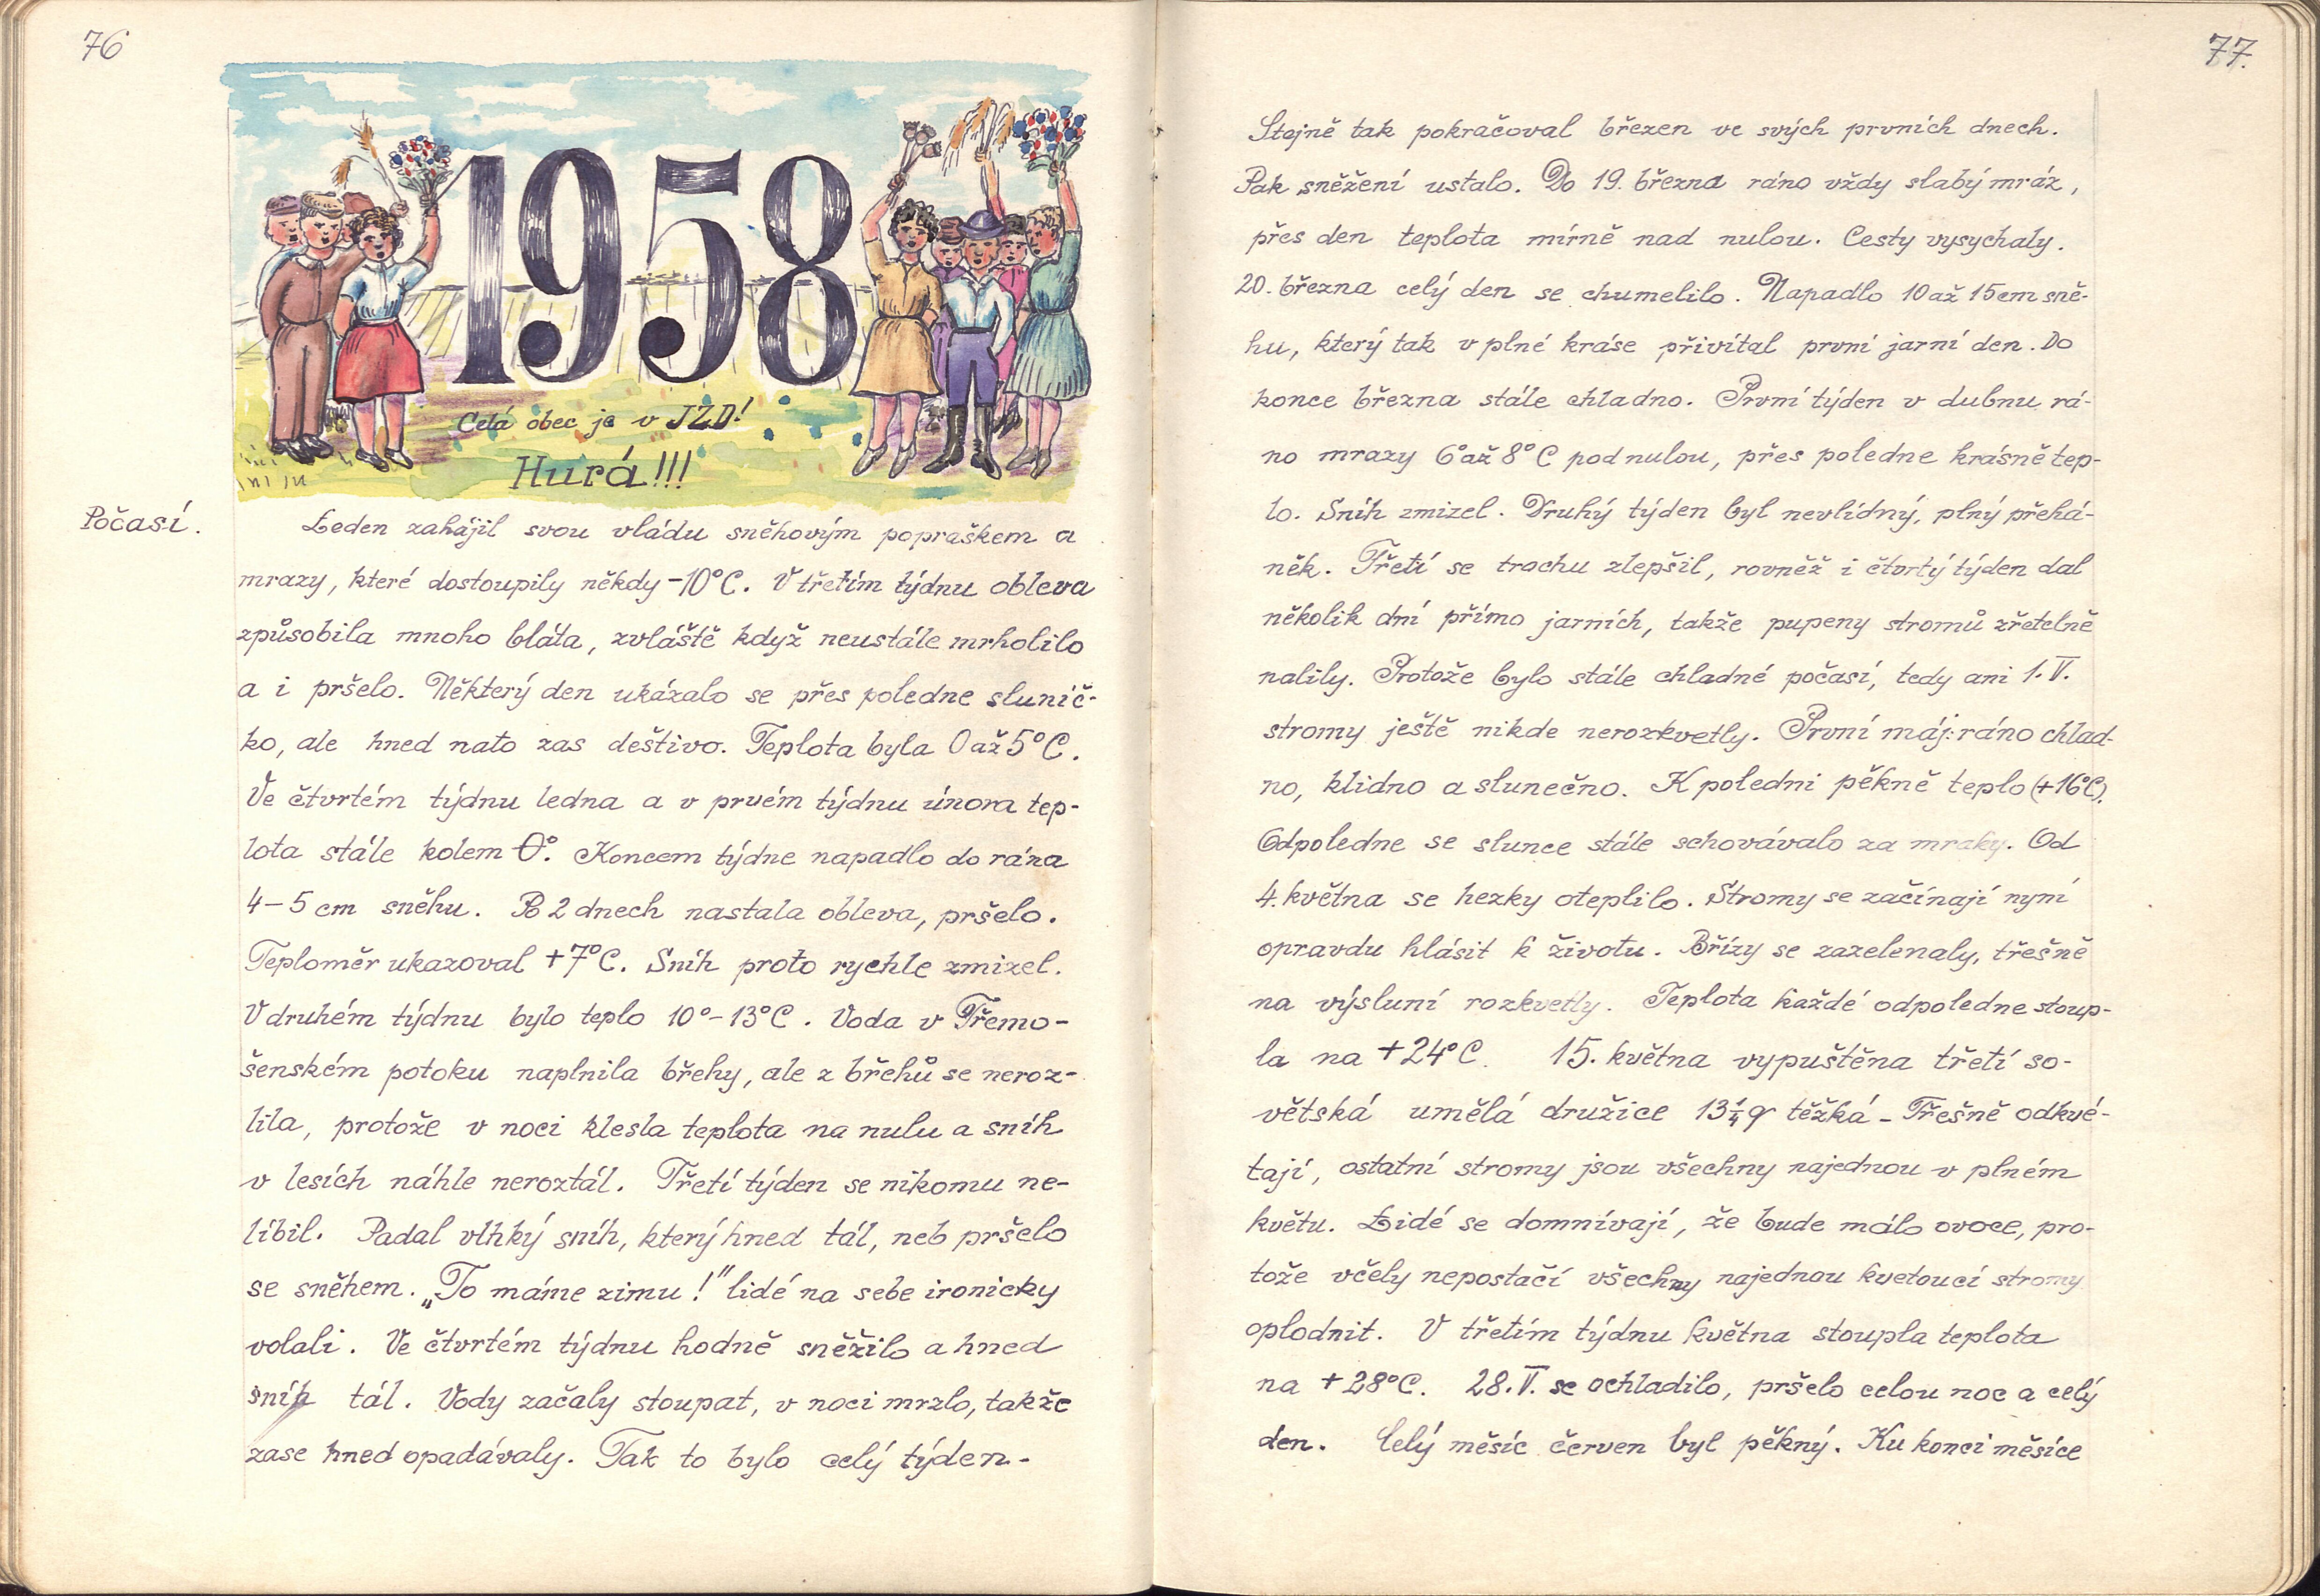 76
1958
Celá obec je v JZD!
Hurá!!!
Počasí.
Leden zahájil svou vládu sněhovým popraškem a
mrazy, které dostoupily někdy -10°C. V třetím týdnu obleva
způsobila mnoho bláta, zvláště když neustále mrholilo
a i pršelo. Některý den ukázalo se přes poledne slunič-
ko, ale hned nato zas deštivo. Teplota byla 0 až 5°C.
Ve čtvrtém týdnu ledna a v prvém týdnu února tep-
lota stále kolem 0°. Koncem týdne napadlo do rána
4-5 cm sněhu. Po 2 dnech nastala obleva, pršelo.
Teploměr ukazoval +7°C. Sníh proto rychle zmizel.
V druhém týdnu bylo teplo 10°-13°C. Voda v Třemo-
šenském potoku naplnila břehy, ale z břehů se neroz-
lila, protože v noci klesla teplota na nulu a sníh
v lesích náhle neroztál. Třetí týden se nikomu ne-
líbil. Padal vlhký sníh, který hned tál, neb pršelo
se sněhem. „To máme zimu!" lidé na sebe ironicky
volali. Ve čtvrtém týdnu hodně sněžilo a hned
sníh tál. Vody začaly stoupat, v noci mrzlo, takže
zase hned opadávaly. Tak to bylo celý týden.
77.
Stejně tak pokračoval březen ve svých prvních dnech.
Pak sněžení ustalo. Do 19. března ráno vždy slabý mráz,
přes den teplota mírně nad nulou. Cesty vysychaly.
20. března celý den se chumelilo. Napadlo 10 až 15 cm sně-
hu, který tak v plné kráse přivítal první jarní den. Do
konce března stále chladno. První týden v dubnu rá-
no mrazy 6° až 8°C pod nulou, přes poledne krásně tep-
lo. Sníh zmizel. Druhý týden byl nevlídný, plný přehá-
něk. Třetí se trochu zlepšil, rovněž i čtvrtý týden dal
několik dní přímo jarních, takže pupeny stromů zřetelně
nalily. Protože bylo stále chladné počasí, tedy ani 1. V.
stromy ještě nikde nerozkvetly. První máj: ráno chlad-
no, klidno a slunečno. K poledni pěkně teplo (+16°C).
Odpoledne se slunce stále schovávalo za mraky. Od
4. května se hezky oteplilo. Stromy se začínají nyní
opravdu hlásit k životu. Břízy se zazelenaly, třešně
na výsluní rozkvetly. Teplota každé odpoledne stoup-
la na +24°C. 15. května vypuštěna třetí so-
větská umělá družice 13¼ q těžká - Třešně odkvé-
tají, ostatní stromy jsou všechny najednou v plném
květu. Lidé se domnívají, že bude málo ovoce, pro-
tože včely nepostačí všechny najednou kvetoucí stromy
oplodnit. V třetím týdnu května stoupla teplota
na +28°C. 28. V. se ochladilo, pršelo celou noc a celý
den. Celý měsíc červen byl pěkný. Ku konci měsíce